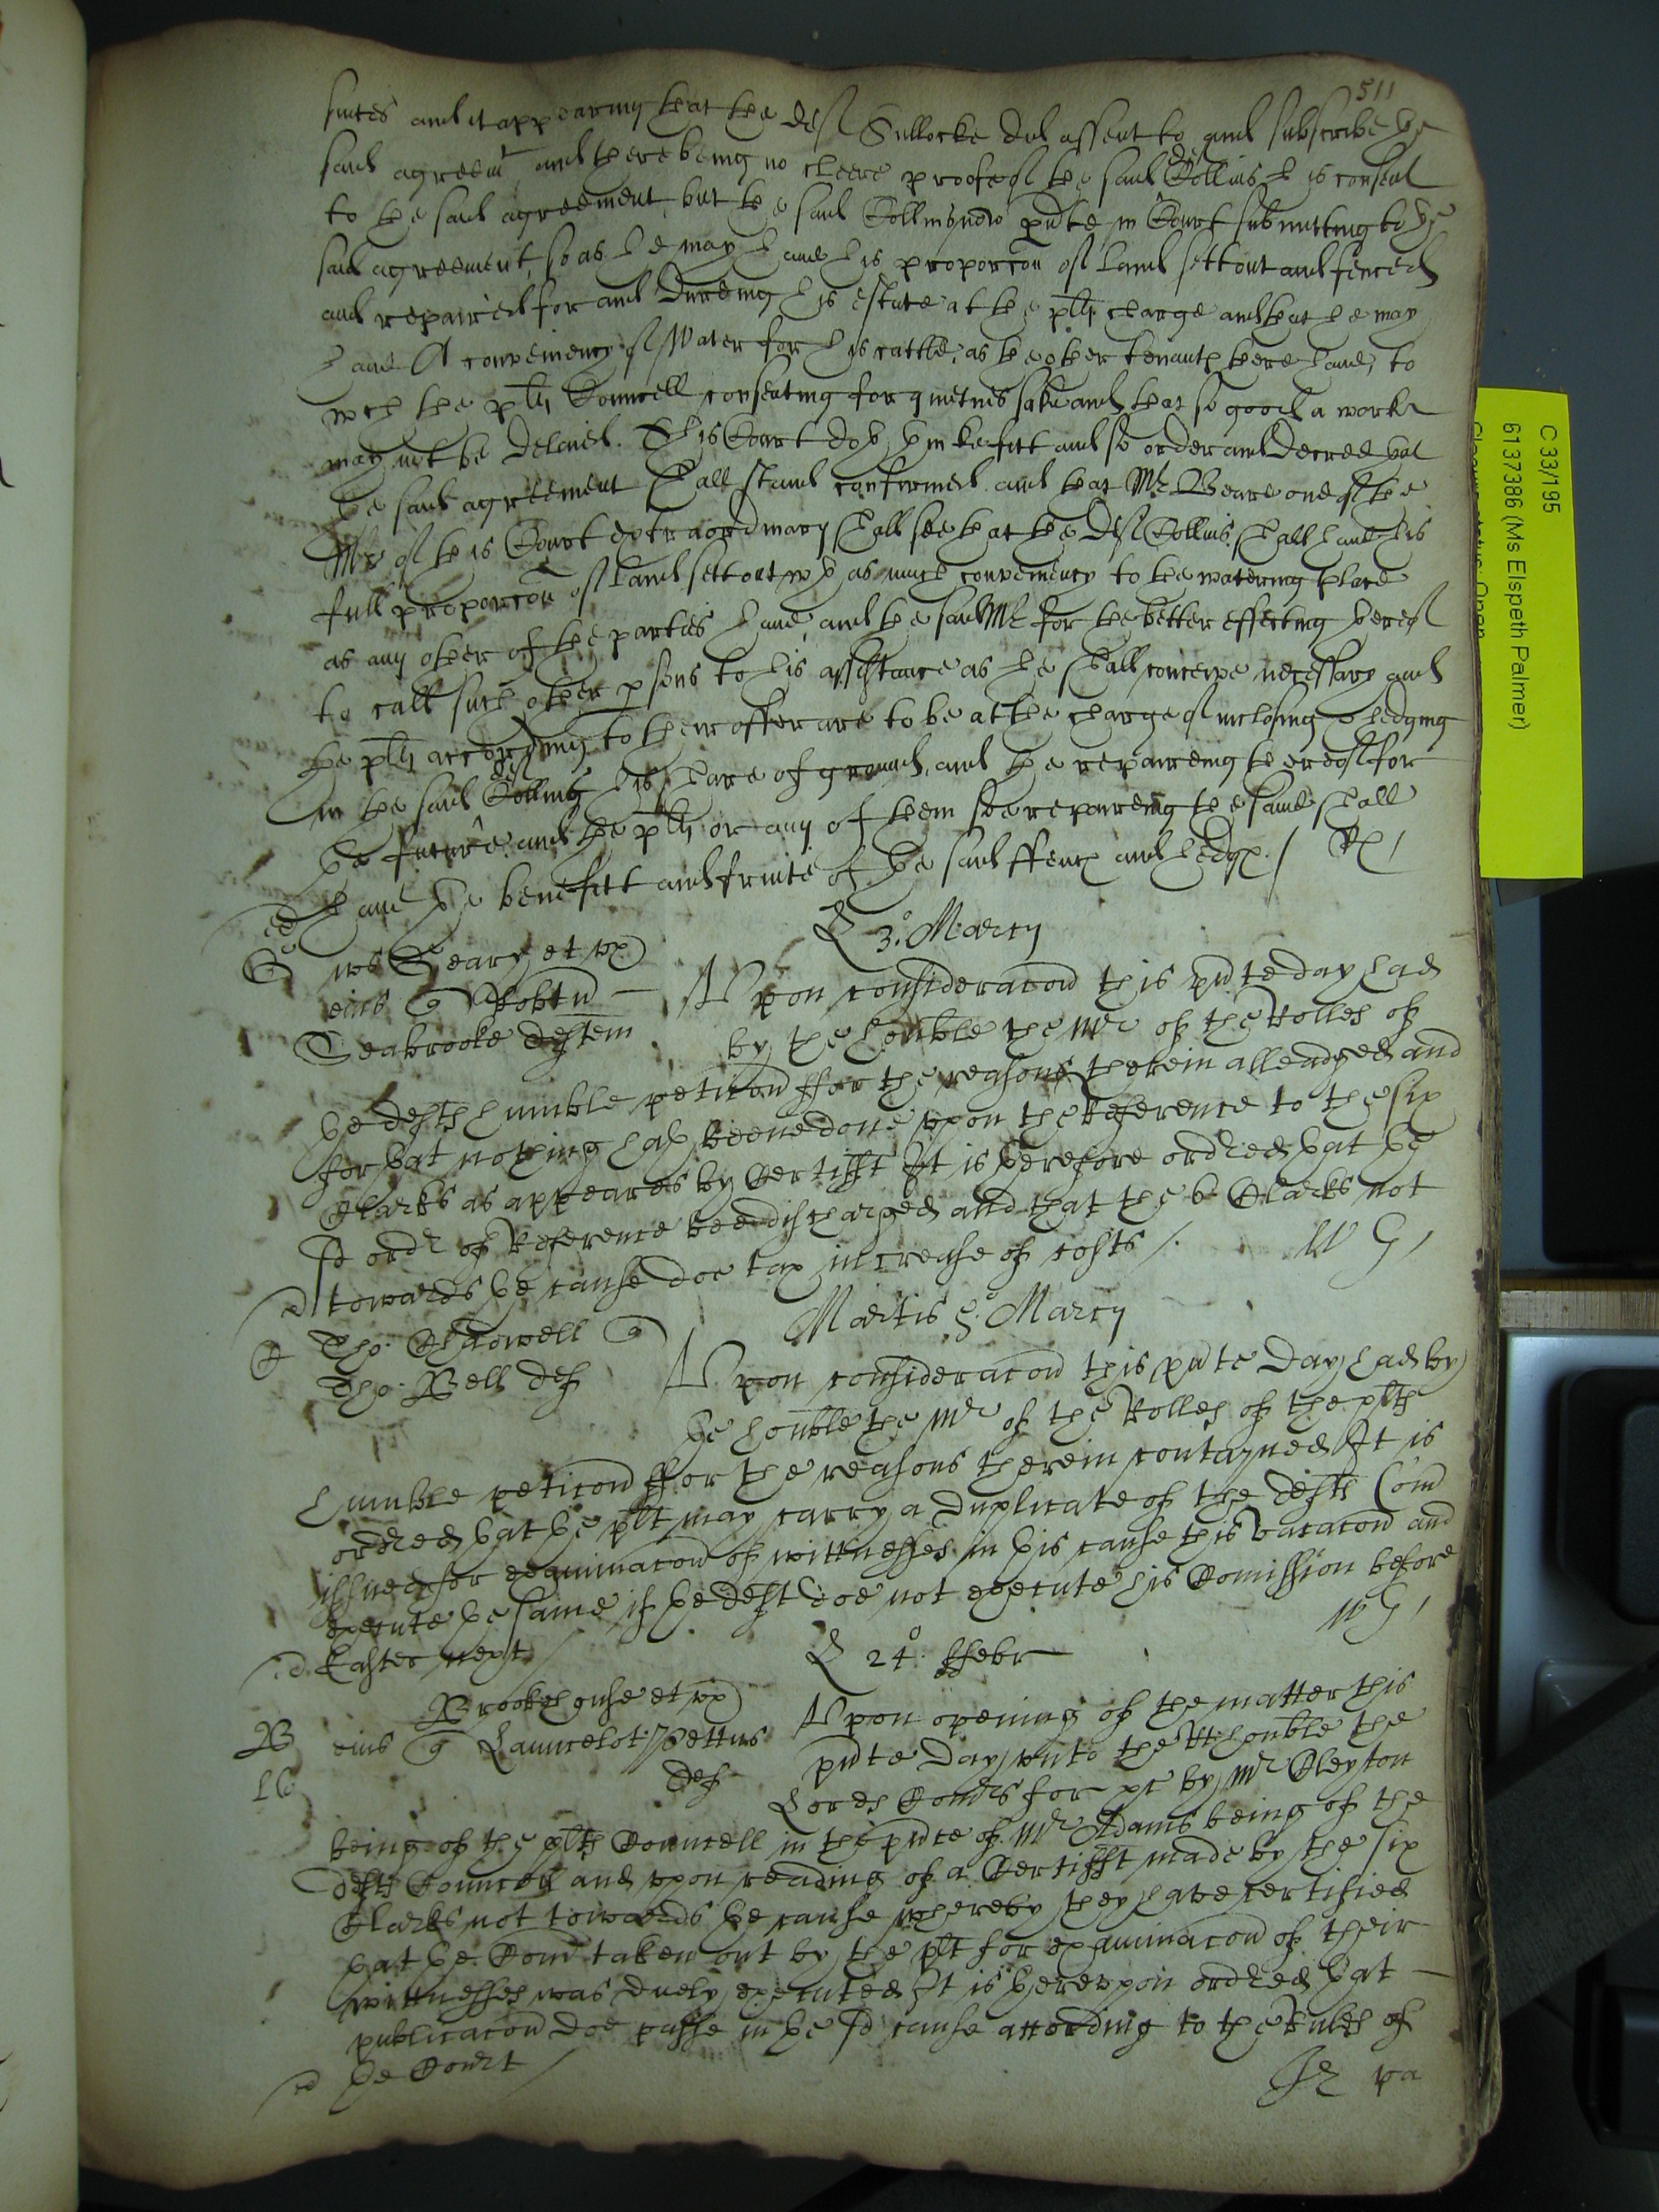 511
suites and it appearing that the def Sullocke did assent to and subscribe the
said agreemt and there being no cleere proofe of the said def Collins his consent
to the said agreement, but the said Collins now pnte in Court submitting to the
said agreement, so as he may have his proporcon of land sett out and fenced
and repaired for and dureing his estate at the plts charge and that he may
have A conveniency of Water for his cattle, as the other tenants there have, to
wch the plts Councell consenting for quietnes sake and that so good a worke
may not be delaied. This Court doth thinke fitt and so order and decree that
the said agreement shall stand confirmed and that Mr Beare one of the
Mrs of this Court extraordinary shall see that the def Collins shall have his
full proporcon of land sett out wth as much conveniency to the watering place
as any other of the parties have, and the said Mr for the better effecting thereof
to call such other psons to his assistance as he shall conceive necessary and
the plts according to their offer are to be at the charge of inclosing & hedging
in the said def Collins his share of ground, and the repaireing thereof for
the future and the plts or any of them soe repaireing the same shall
have the benefitt and fruite of the said ffences and hedges /
3o. Marcij
ws Geary et ux
eius Robtu
Seabrooke deftem
Upon consideracon this pnte day had
by the honble the Mr of the Rolles of
the defts humble peticon ffor the reasons therein alleadged and
for that nothing hath beene done upon the Reference to the six
Clarks as appeares by Certifft It is therefore ordred that the
sd ordr of Reference bee discharged and that the 6 Clarks not
towards the cause doe tax increase of costs /.
W G /
Martis 5o. Marcij
Tho: Shadwell
Tho: Bell def
Upon consideracon this pnte Day had by
the honble the Mr of the Rolles of the plts
humble peticon ffor the reasons therein contayned It is
ordred that the plt may carry a duplicate of the defts Com
issued for examinacon of wittnesses in this cause this vacacon and
execute the same if the deft doe not execute his Comission before
Easter next /
W G /
24o. ffebr
Brookehouse et ux
eius Launcelot Pettus
def
B
Upon opening of the matter this
pnte day unto the Rt honble the
Lords Comrs for pt by Mr Cleyton
being of the plts Councell in the pnce of Mr Adams being of the
defts Councell and upon reading of a Certifft made by the six
Clarks not towards the cause whereby they have certified
that the Com taken out by the plt for examinacon of their
wittnesses was duely executed It is thereupon ordred that
publicacon doe passe in the sd cause according to the Rules of
the Court /
C 33/195
6137386 (Ms Elspeth Palmer)